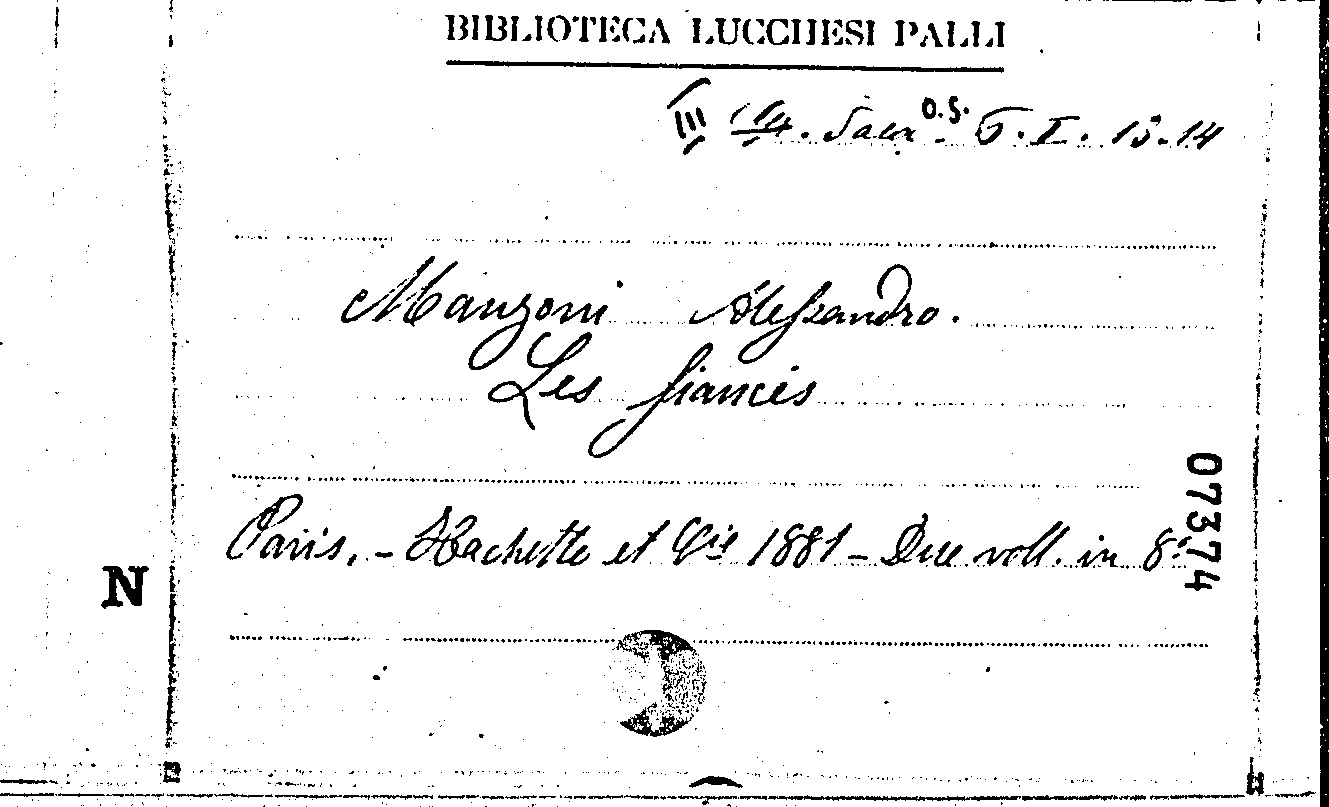 BIBLIOTECA LUCCHESI PALLI
III Sala O.S. I. 13.14
Manzoni Alessandro.
Les fiancés
Paris. - Hachette et Cie 1881 - Due voll. in 8°
07374
N